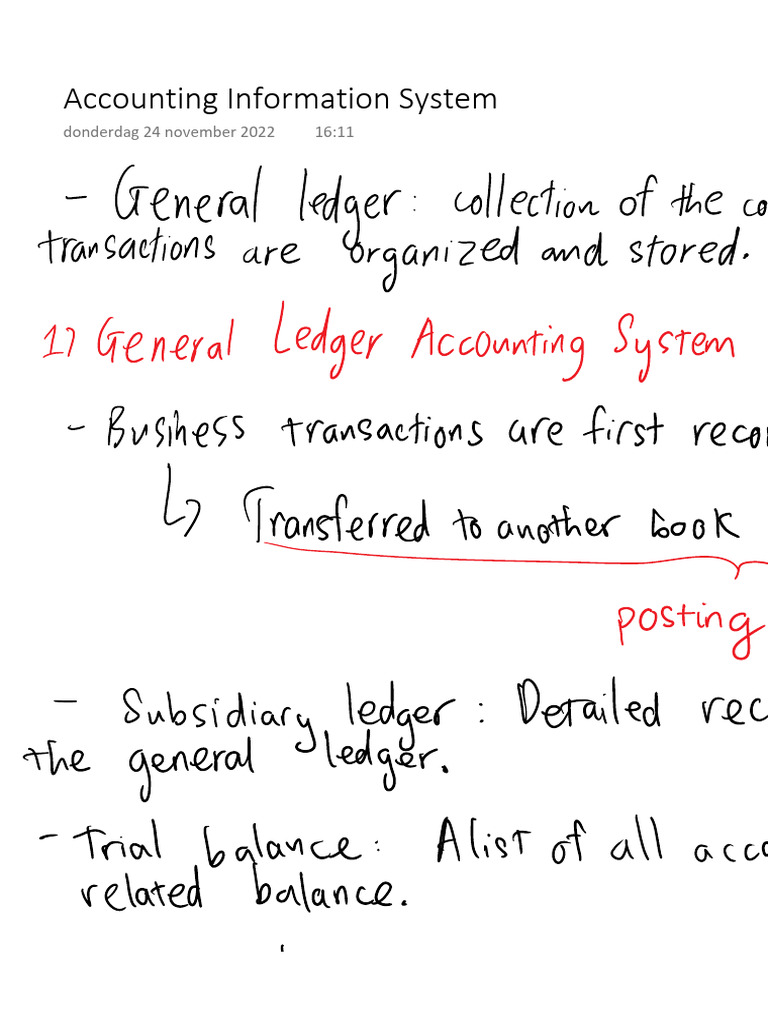 Accounting Information System
donderdag 24 november 2022 16:11
- General ledger: collection of the co
transactions are organized and stored.
1) General Ledger Accounting System
- Business transactions are first recor
↳ Transferred to another book
posting
- Subsidiary ledger: Detailed rec
the general ledger.
- Trial balance: A list of all acco
related balance.